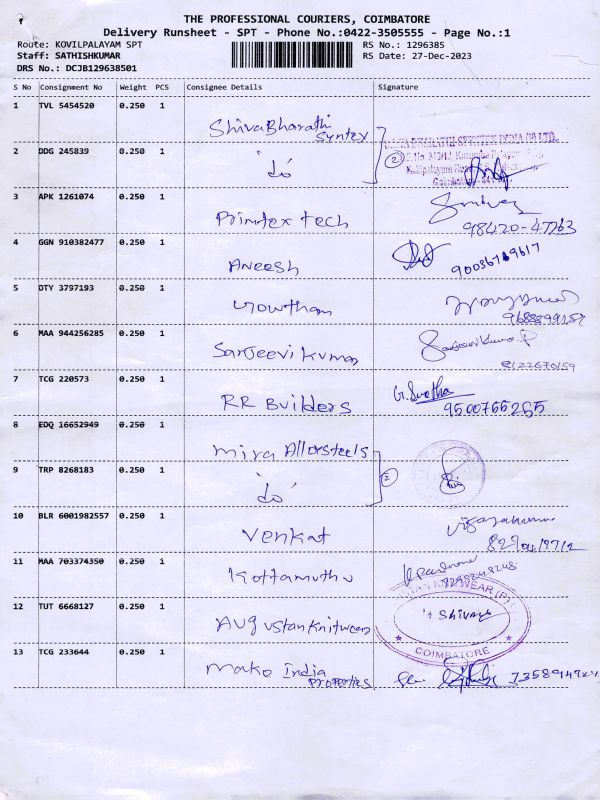 THE PROFESSIONAL COURIERS, COIMBATORE
Delivery Runsheet - SPT - Phone No.:0422-3505555 - Page No.:1
Route: KOVILPALAYAM SPT RS No.: 1296385
Staff: SATHISHKUMAR RS Date: 27-Dec-2023
DRS No.: DCJB129638501
S No Consignment No Weight PCS Consignee Details Signature
1 TVL 5454520 0.250 1 ShivaBharathi Syntex
2 DDG 245839 0.250 1 "do" 2
3 APK 1261074 0.250 1 Primtex tech
98420-47763
4 GGN 910382477 0.250 1 Aneesh 90036769617
5 DTY 3797193 0.250 1 Gowtham
6 MAA 944256285 0.250 1 Sanjeevi kumar Sanjeevi Kumar P
7 TCG 220573 0.250 1 RR Builders G. Swetha
9500765265
8 EDQ 16652949 0.250 1 mira Alloysteels
9 TRP 8268183 0.250 1 "do" 2
10 BLR 6001982557 0.250 1 Venkat
11 MAA 703374350 0.250 1 Kottamuthu
12 TUT 6668127 0.250 1 Augustan knitwear
COIMBATORE
13 TCG 233644 0.250 1 Mako India Properties